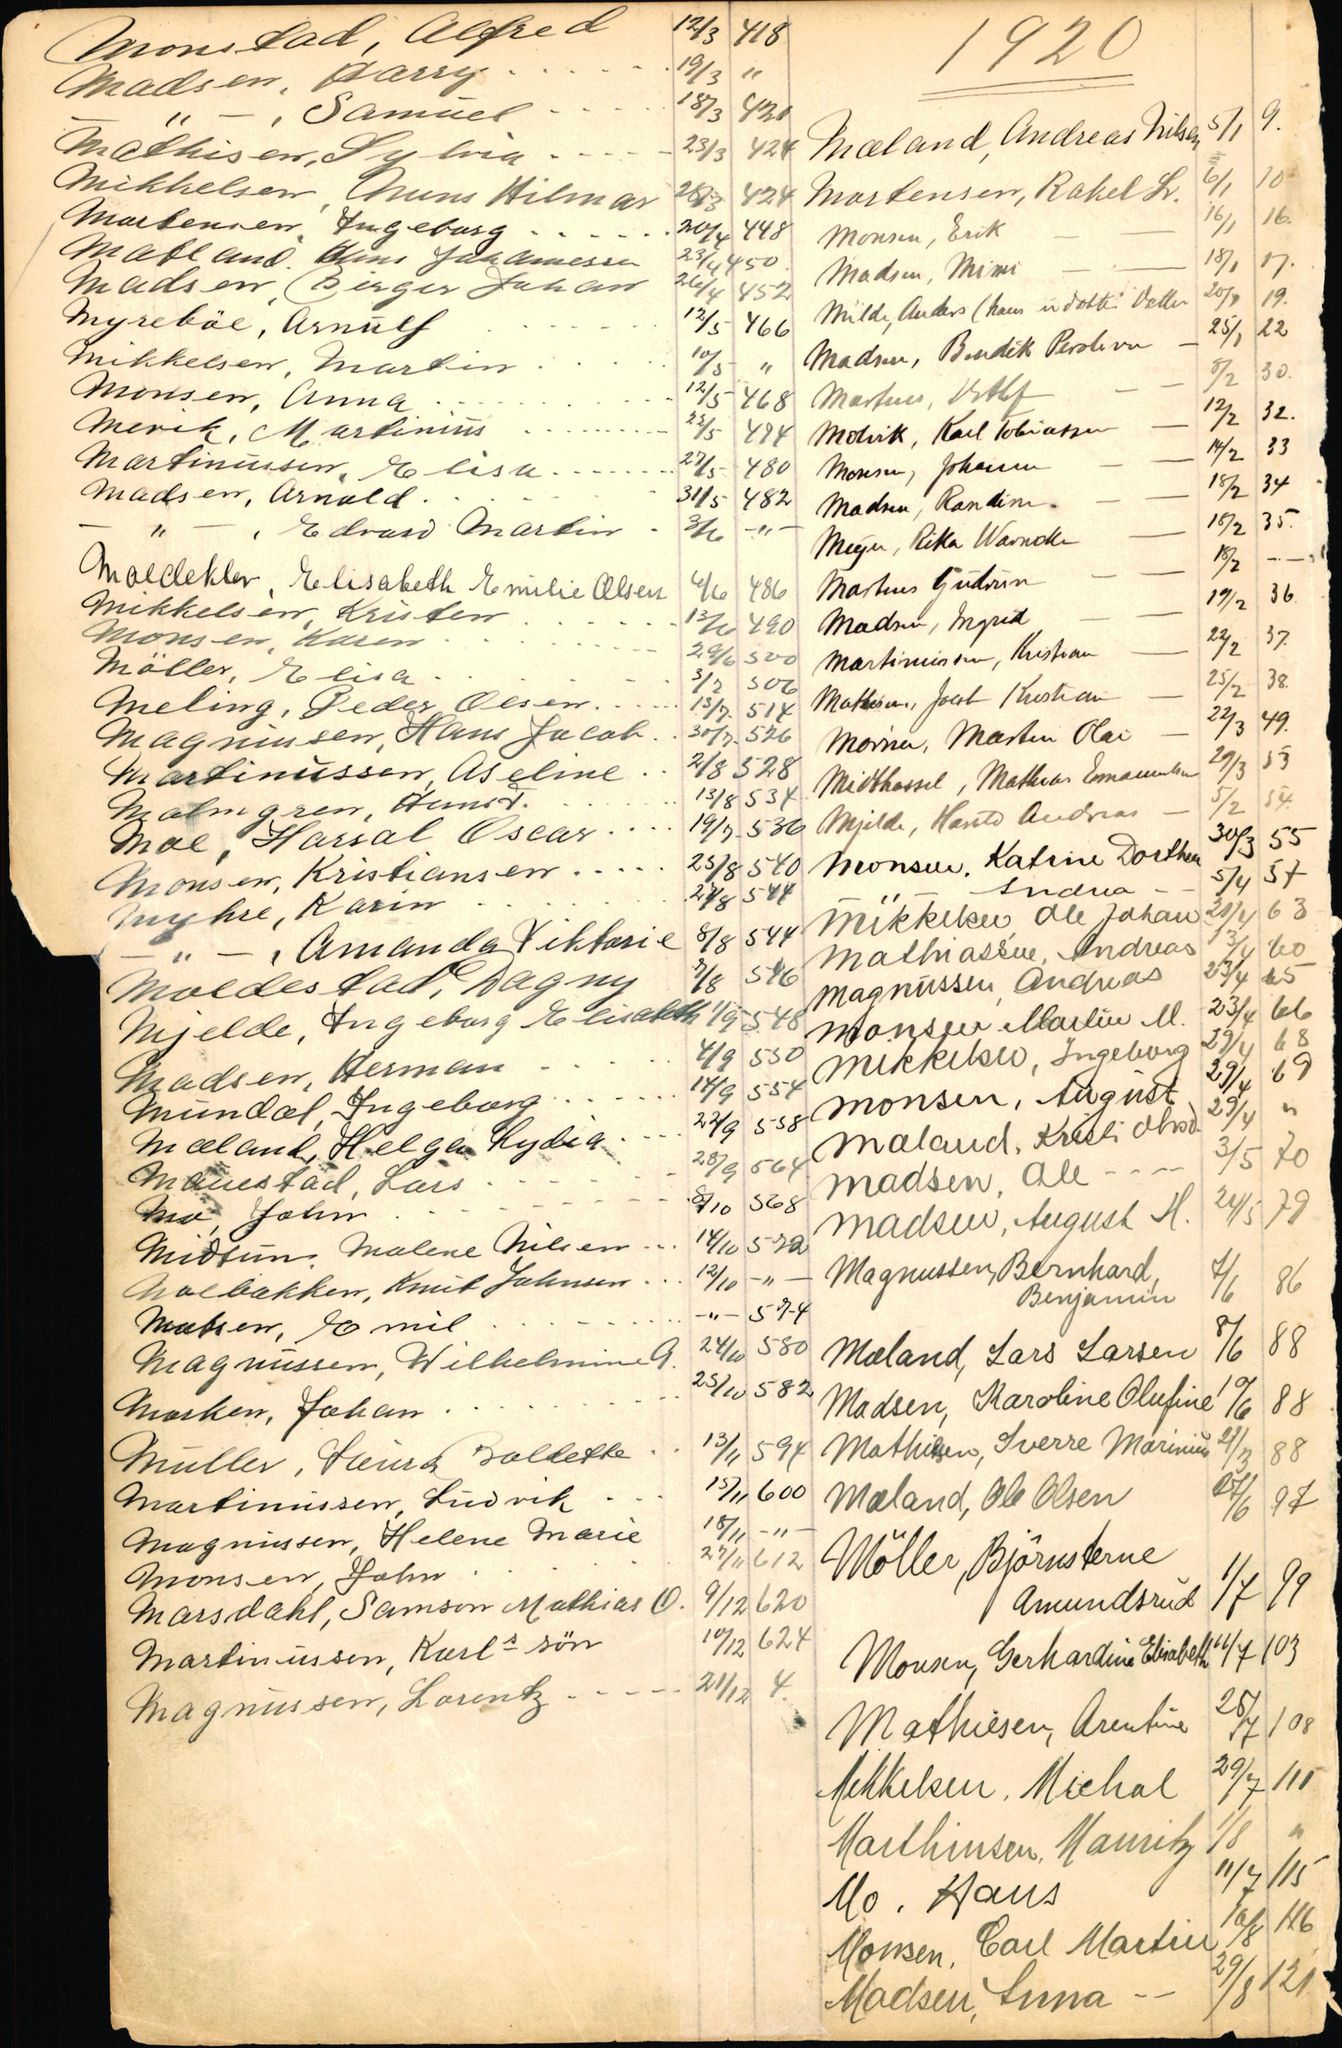 Monstad, Alfred 12/3 418
Madsen, Harry 19/3 "
— " — , Samuel 18/3 421
Mathisen, Sylvia 23/3 424
Mikkelsen, Hilmar 424
Martensen, Ingeborg 20/4 448
Matland. Hans Johannessen 23/4 450
Madsen, Birger Johan 26/4 452
Myreböe, Arnulf 12/5 466
Mikkelsen, Martin 10/5 "
Monsen, Anna 12/5 468
Mevik, Martinius 23/5 474
Martinussen, Elisa 27/5 480
Madsen, Arnold 31/5 482
— " — , Edvard Martin 3/6 — " —
Moldeklev, Elisabeth Emilie Olsen 4/6 486
Mikkelsen, Kristen 13/6 490
Monsen, Karen 29/6 500
Möller, Elisa 3/7 506
Meling, Peder Olsen 13/7 514
Magnussen, Hans Jacob 30/7 526
Martinussen, Aseline 2/8 528
Malmgren, 13/8 534
Moe, Harsal Oscar 19/7 536
Monsen, Kristiansen 25/8 540
Myhre, Karin 27/8 544
— " — , Amanda Viktorie 8/8 544
Moldestad, Dagny 7/8 546
Mjelde, Ingeborg Elisabeth 1/9 548
Madsen, Herman 4/9 550
Mundal, Ingeborg 14/9 554
Mæland, Helga Lydia 22/9 558
Lars 28/9 564
Mo, John 8/10 568
Midtun, Malene Nilsen 14/10 572
Moebakken, Knut Johnsen 12/10 — " —
Matsen, Emil — " — 574
Magnussen, Wilhelmine G. 24/10 580
Morken, Johan 25/10 582
Müller, Laura Bolette 13/11 594
Martinussen, Ludvik 15/11 600
Magnussen, Helene Marie 18/11 — " —
Monsen, John 27/11 612
Marsdahl, Samson Mathias O. 9/12 620
Martinussen, Karls sön 10/12 624
Magnussen, Lorentz 21/12 4.
1920
Mæland, Andreas Nilsen 5/1 9.
Martensen, Rakel L. 6/1 10
Monsen, Erik 16/1 16.
Madsen, Mimi 18/1 17.
Milde, Anders 20/1 19.
Madsen, Bendik 25/1 22
Martens, 5/2 30.
Modvik, Karl Tobiassen 12/2 32.
Monsen, Johanne 14/2 33
Madsen, Randine 18/2 34
Meyer, Rika Warncke 18/2 35.
Martens Gudrun 18/2 — " —
Madsen, Ingrid 19/2 36
Martinussen, Kristian 22/2 37.
Mathisen, Jacob Kristian 25/2 38
Morner, Martin Olai 22/3 49.
Midthassel, Mathias Emanuelsen 29/3 53
Mjelde, Andreas 5/2 54
Monsen, Katrine Dorthea 30/3 55
— " — Andrea 5/4 57
Mikkelsen, Ole Johan 20/4 63
Mathiassen, Andreas 13/4 60
Magnussen, Andreas 23/4 65
Monsen Martin M. 23/4 66
Mikkelsen, Ingeborg 29/4 68
Monsen, August 29/4 69
Mæland, Kristi 29/4 "
Madsen, Ole 3/5 70
Madsen, August M. 21/5 79
Magnussen, Bernhard,
Benjamin 7/6 86
Mæland, Lars Larsen 8/6 88
Madsen, Karoline Olufine 10/6 88
Mathisen, Sverre Marinius 88
Mæland, Ole Olsen 97
Möller, Björnsterne
Amundsrud 1/7 99
Monsen, Gerhardine Elisabeth 11/7 103
Mathiesen, Arentine 25/7 108
Mikkelsen, Michal 29/7 111
Marthinsen, Mauritz 1/8 "
Mo, Hans 11/7 115
Monsen, Carl Martin 16/8 116
Madsen, Anna 29/8 121